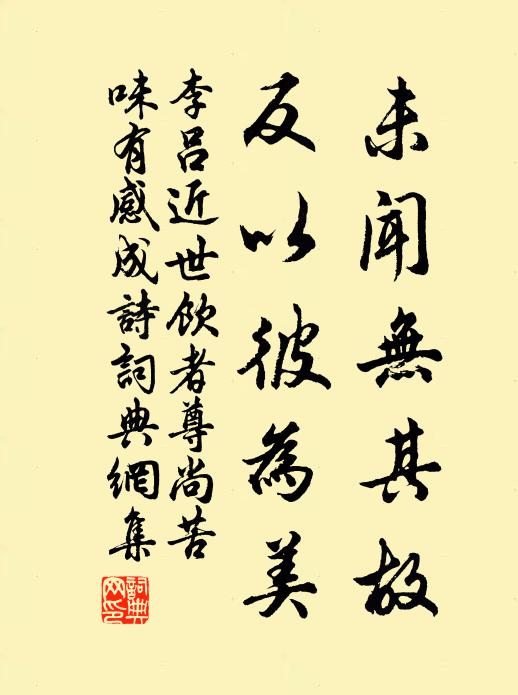 未聞無其故
反以彼為美
李呂近世飲者尊尚苦
味有感成詩詞典網集